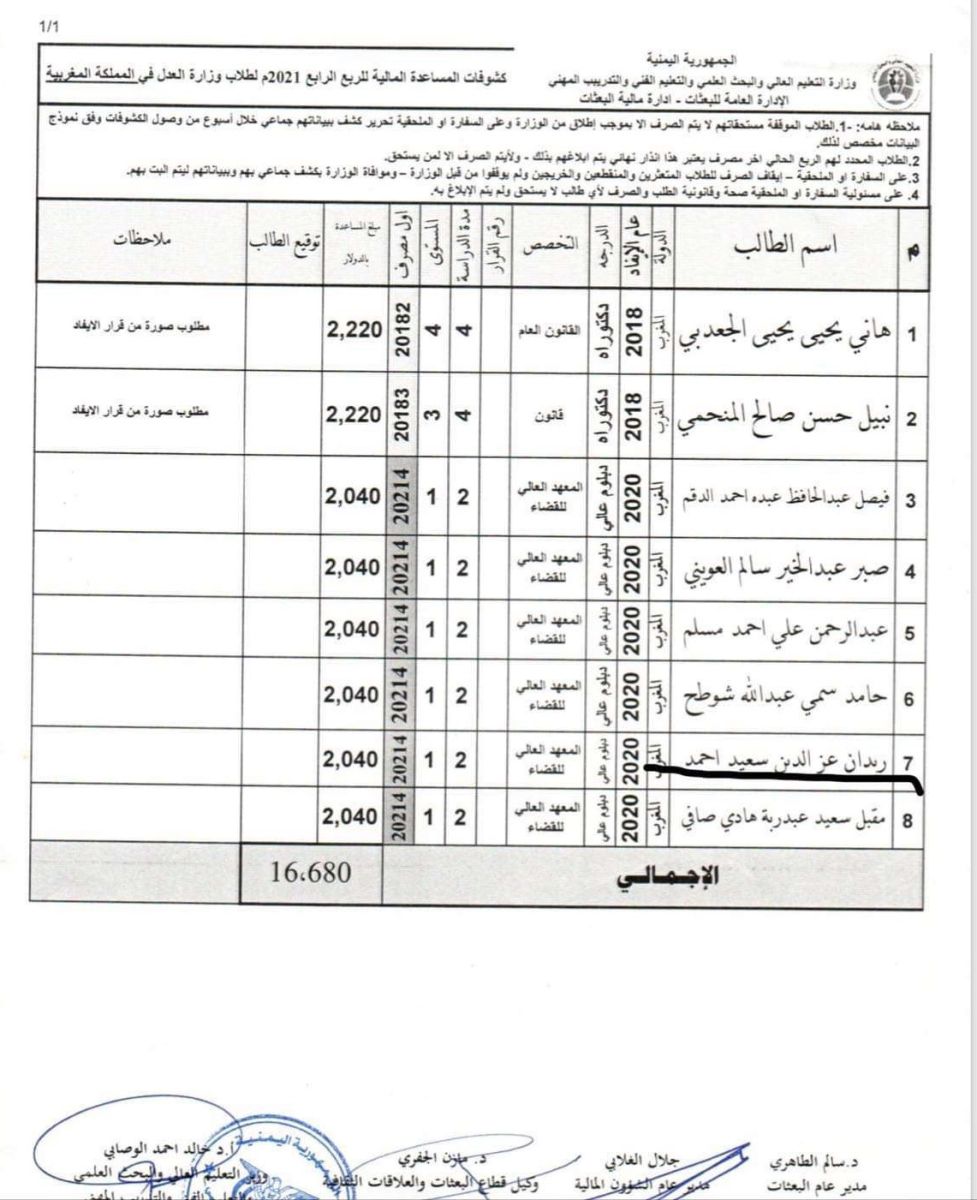 1/1
الجمهورية اليمنية
وزارة التعليم العالي والبحث العلمي والتعليم الفني والتدريب المهني
الإدارة العامة للبعثات - ادارة مالية البعثات
كشوفات المساعدة المالية للربع الرابع 2021م لطلاب وزارة العدل في المملكة المغربية
ملاحظه هامه: -1.الطلاب الموقفة مستحقاتهم لا يتم الصرف الا بموجب إطلاق من الوزارة وعلى السفارة او الملحقية تحرير كشف ببياناتهم جماعي خلال أسبوع من وصول الكشوفات وفق نموذج
البيانات مخصص لذلك.
2.الطلاب المحدد لهم الربع الحالي اخر مصرف يعتبر هذا انذار نهائي يتم ابلاغهم بذلك - ولايتم الصرف الا لمن يستحق.
3.على السفارة او الملحقية – إيقاف الصرف للطلاب المتعثرين والمنقطعين والخريجين ولم يوقفوا من قبل الوزارة – وموافاة الوزارة بكشف جماعي بهم وببياناتهم ليتم البت بهم.
4. على مسئولية السفارة او الملحقية صحة وقانونية الطلب والصرف لأي طالب لا يستحق ولم يتم الإبلاغ به.
م اسم الطالب الدولة عام الإيفاد الدرجه التخصص رقم القرار مدة الدراسة المستوى اول مصرف مبلغ المساعدة بالدولار توقيع الطالب ملاحظات
1 هاني يحيى يحيى الجعدبي المغرب 2018 دكتوراه القانون العام 4 4 20182 2,220 مطلوب صورة من قرار الايفاد
2 نبيل حسن صالح المنحمي المغرب 2018 دكتوراه قانون 4 3 20183 2,220 مطلوب صورة من قرار الايفاد
3 فيصل عبدالحافظ عبده احمد الدقم المغرب 2020 دبلوم عالي المعهد العالي للقضاء 2 1 20214 2,040
4 صبر عبدالخير سالم العويني المغرب 2020 دبلوم عالي المعهد العالي للقضاء 2 1 20214 2,040
5 عبدالرحمن علي احمد مسلم المغرب 2020 دبلوم عالي المعهد العالي للقضاء 2 1 20214 2,040
6 حامد سمي عبدالله شوطح المغرب 2020 دبلوم عالي المعهد العالي للقضاء 2 1 20214 2,040
7 ريدان عز الدين سعيد احمد المغرب 2020 دبلوم عالي المعهد العالي للقضاء 2 1 20214 2,040
8 مقبل سعيد عبدربة هادي صافي المغرب 2020 دبلوم عالي المعهد العالي للقضاء 2 1 20214 2,040
الإجمالي 16،680
د.سالم الطاهري جلال الغلابي د. مازن الجفري أ.د خالد احمد الوصابي
مدير عام البعثات مدير عام الشؤون المالية وكيل قطاع البعثات والعلاقات الثقافية وزير التعليم العالي والبحث العلمي
والتعليم الفني والتدريب المهني